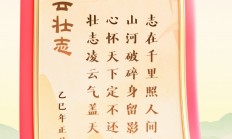 志在千里照人间
山河破碎身留影
心怀天下定不还
壮志凌云气盖天
乙巳年正
云壮志